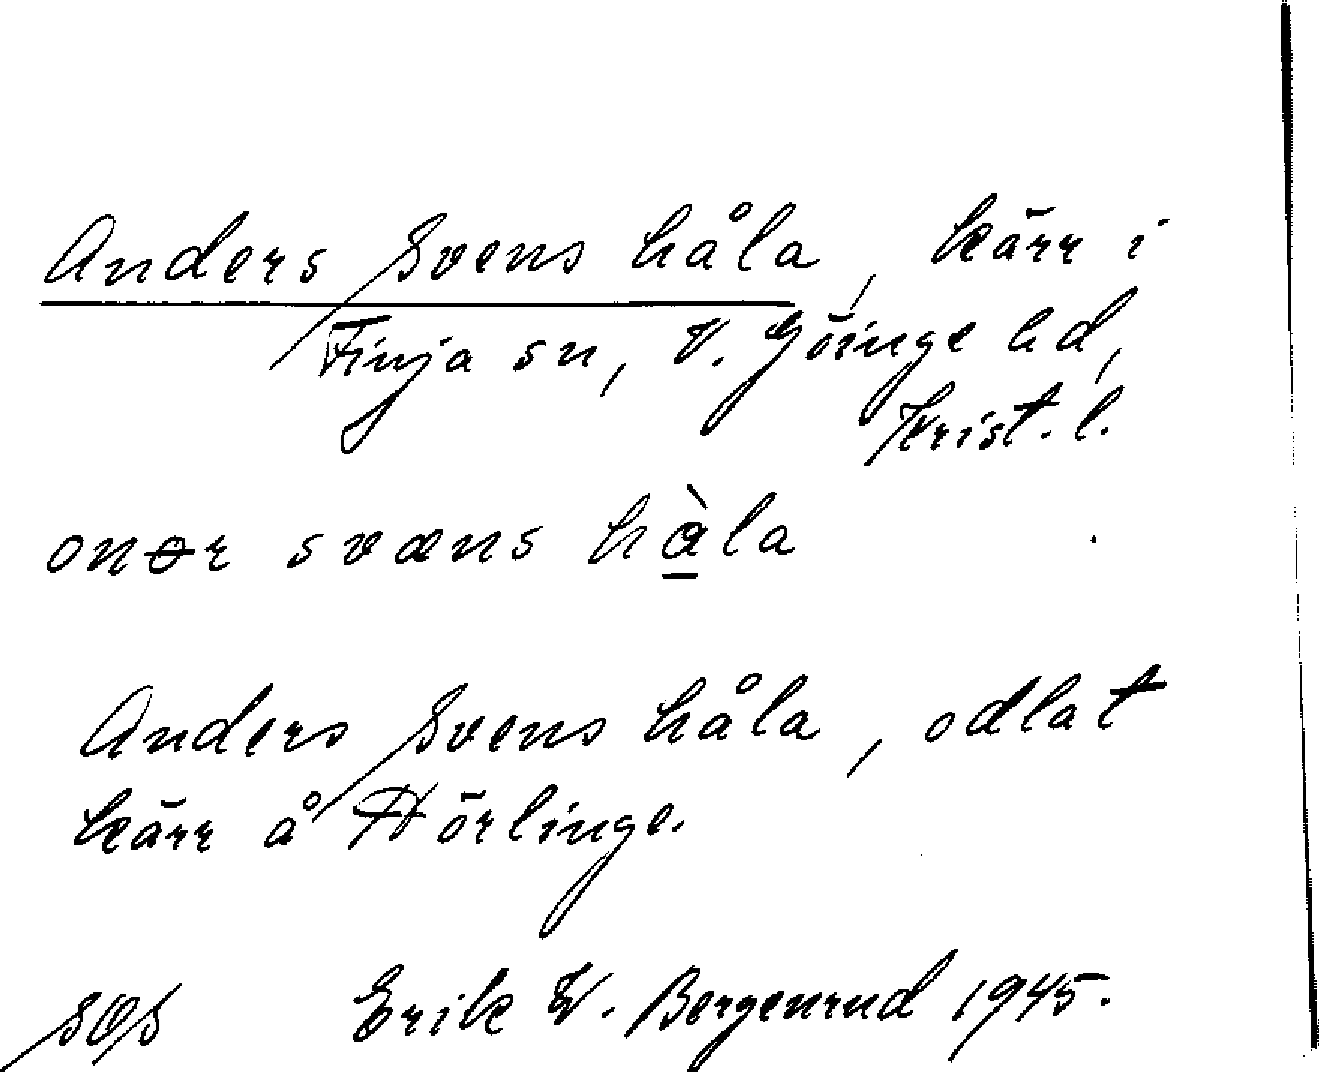 Anders Svens håla, kärr i
Finja sn, V. Göinge hd,
Krist. l.
onɵr svæns hàla
Anders Svens håla, odlat
kärr å Hörlinge.
Erik W. Bergenrud 1945.